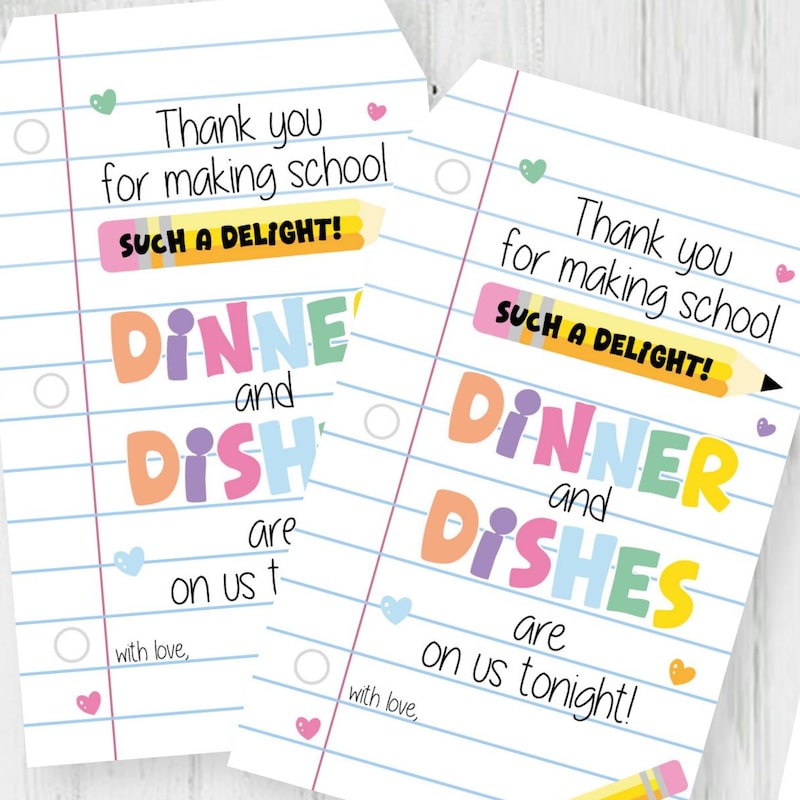 Thank you
for making school
SUCH A DELIGHT!
DiNNE
and
DiSH
are
on us t
with love,
Thank you
for making school
SUCH A DELIGHT!
DiNNER
and
DiSHES
are
on us tonight!
with love,